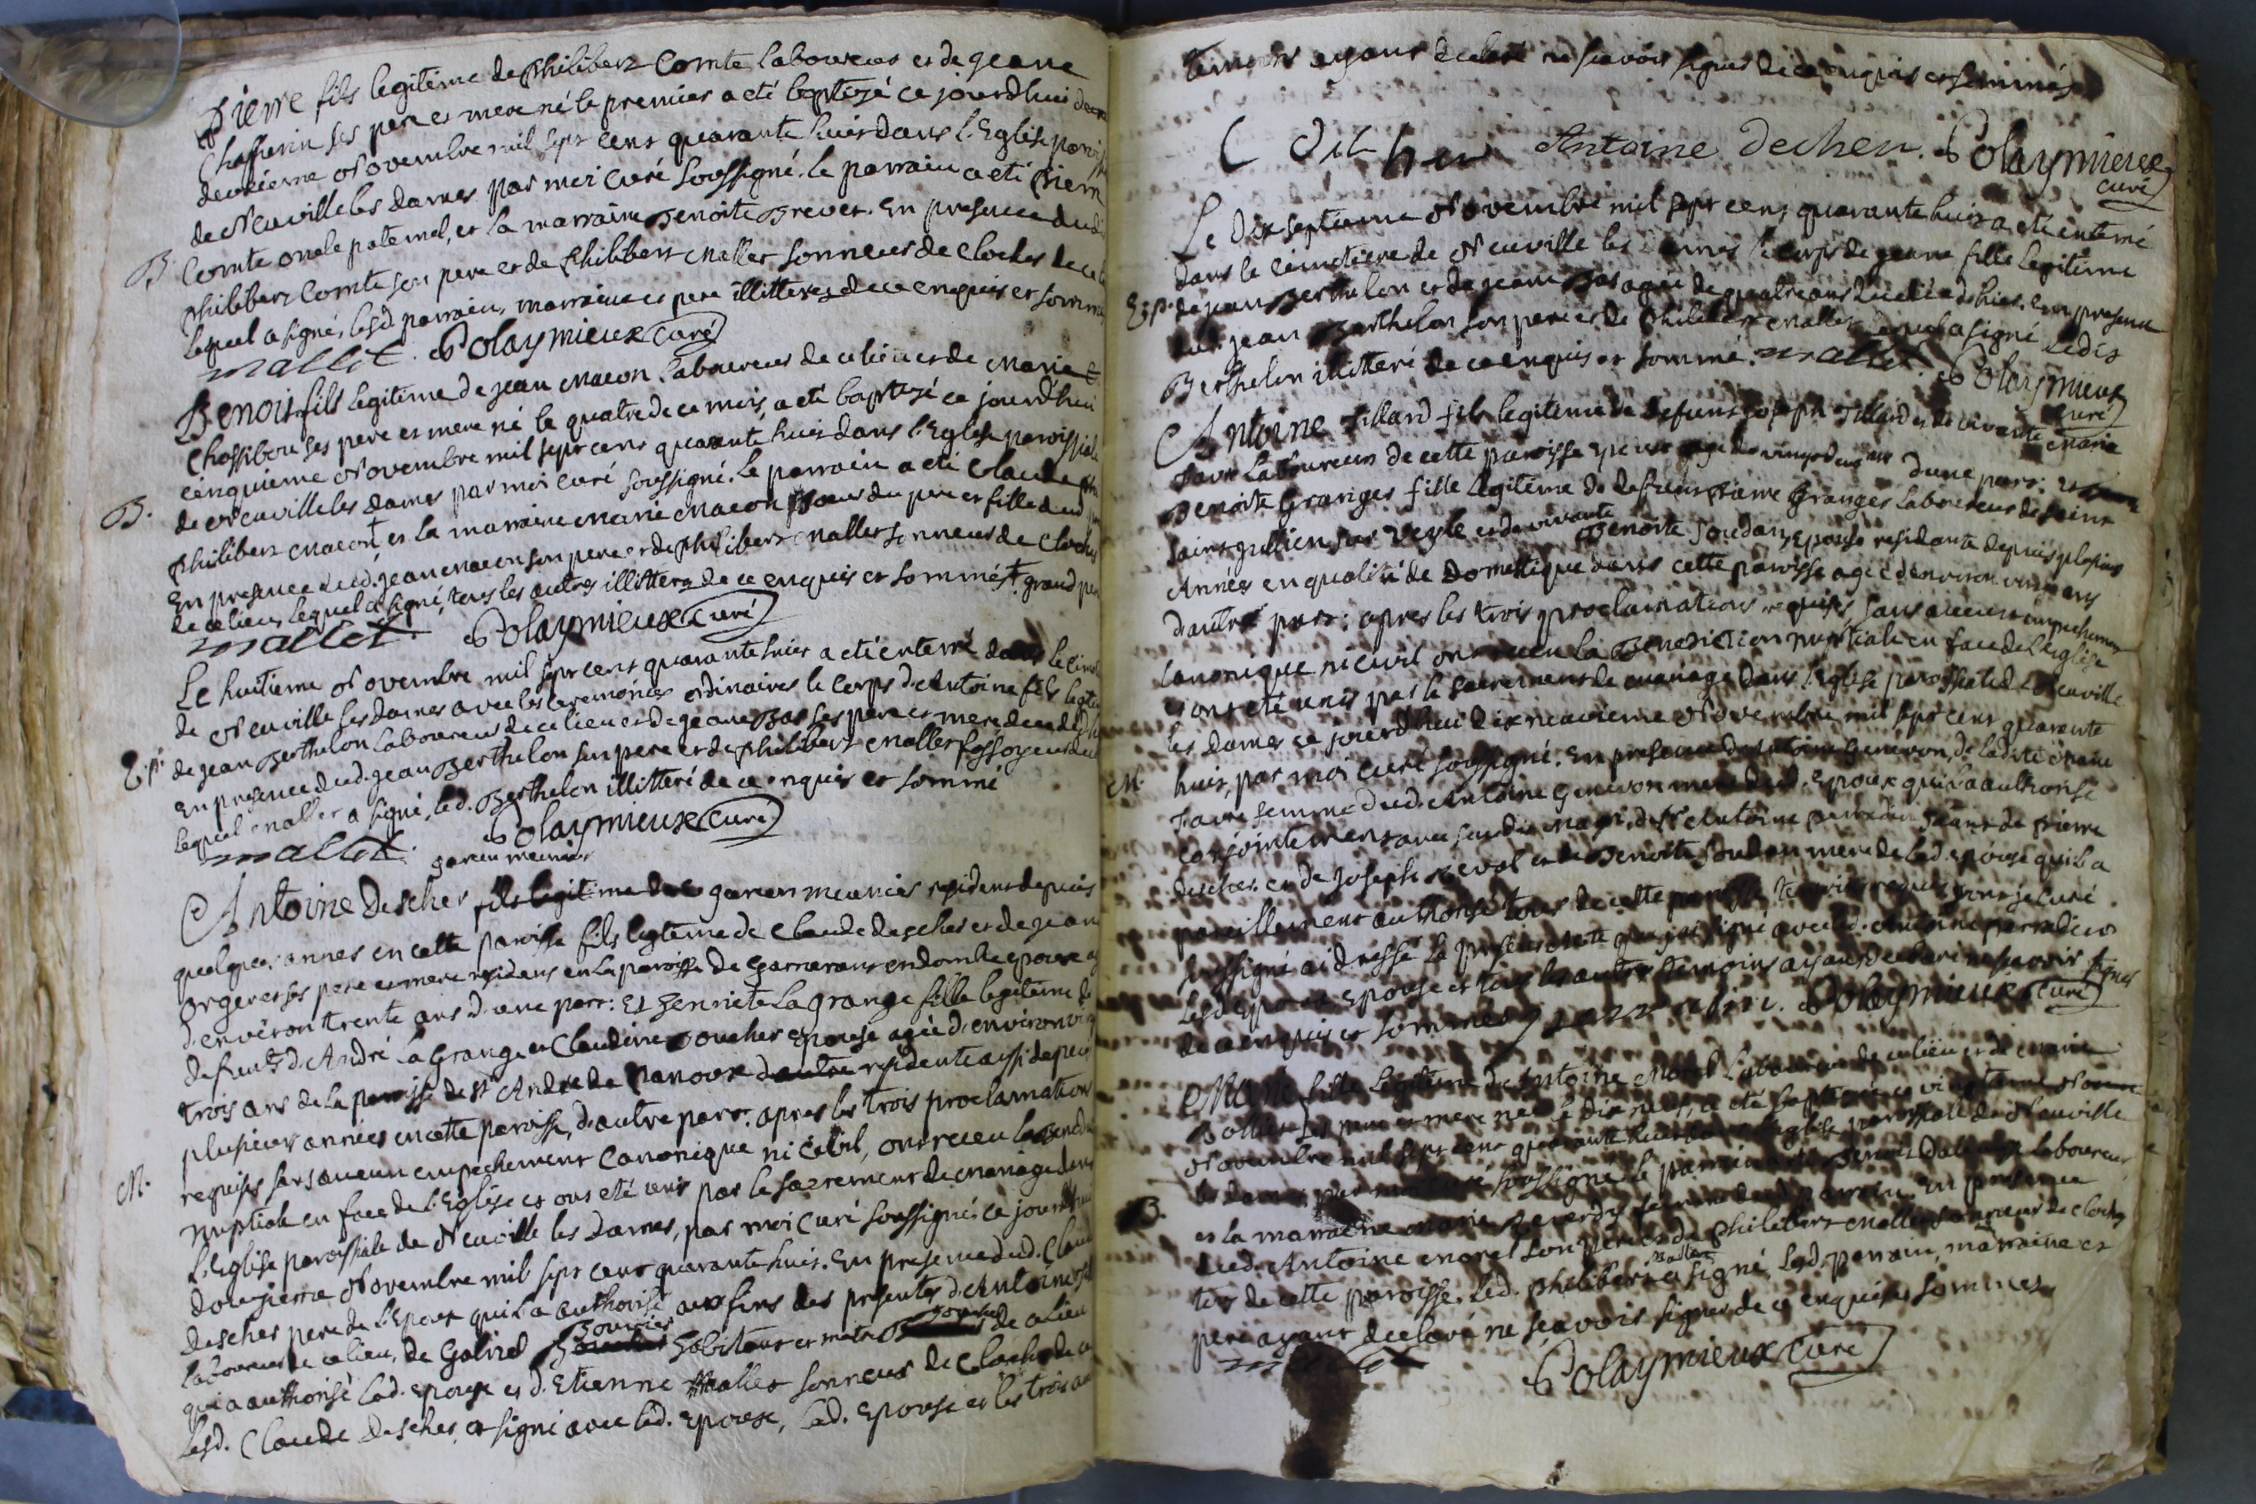 Pierre fils legitime de philibert Comte laboureur et de jeane
Chaffurin ses pere et mere né le premier a eté baptizé ce jourdhui
deuxieme Novembre mil sept cent quarante huit dans l'Eglise
de Neuville les dames par moi curé soussigné. le parrain a eté pierre
B. Comte oncle paternel, et la marraine Benoite Brevet. En presence dud
philibert Comte son pere et de philibert Mallet sonneur de cloches de ce
lequel a signé, lesd. parrain, marraine et pere illitterez de ce enquis et sommé
mallet. Polaymieux curé
Benoit fils legitime de jean Macon laboureur de ce lieu et de Marie
Chossibou ses pere et mere né le quatre de ce mois, a eté baptizé ce jourdhui
cinquieme Novembre mil sept cent quarante huit dans l'Eglise paroissiale
B. de Neuville les dames par moi curé soussigné. Le parrain a eté Claude
philibert Macon + et la marraine Marie Macon soeur du pere et fille dud
En presence dud. jean Macon son pere et de philibert Mallet sonneur de cloches
de ce lieu, lequel a signé, tous les autres illitterez de ce enquis et sommés + grand pere
mallet. Polaymieux curé
Le huitieme Novembre mil sept cent quarante huit a eté enterré dans le
de Neuville les dames avec les ceremonies ordinaires le corps d'Antoine fils
Ep. de jean Berthelon laboureur de ce lieu et de jeane Bas ses pere et mere
En presence dud. jean Berthelon son pere et de philibert Mallet fossoyeur
lequel Mallet a signé, led. Berthelon illitteré de ce enquis et sommé
mallet. Polaymieux curé
garcon meunier
Antoine descher fils legitime de garcon meunier resident depuis
quelques annes en cette paroisse fils legitime de Claude descher et de jeane
Orgeret ses pere et mere residens en la paroisse de en dombe epoux
d'environ trente ans d'une part: et Benoite La grange fille legitime
defunts d'André La Grange et Claudine Boucher epouse agée d'environ
trois ans de la paroisse de St André de Panoux d'autre residente aussi depuis
plusieur années en cette paroisse, d'autre part: apres les trois proclamations
M. requises sans aucun empechement Canonique ni Civil, ont receu la
nuptiale en face de l'Eglise et ont eté unis par le sacrement de mariage dans
L'Eglise paroissiale de Neuville les dames, par moi curé soussigné ce jourdhui
douzieme Novembre mil sept cent quarante huit. En presence dud. Claude
descher pere de l'Epoux qui l'a authorisé aux fins des presentes d'Antoine
laboureur de ce lieu, de Gabriel Bouvier habitant et de ce lieu
qui a authorisé lad. epouse et d'Etienne Mallet sonneur de cloches de ce
led. Claude descher a signé avec led. epoux, lad. Epouse et les trois
temoins ayant declaré ne scavoir signer de ce enquis et sommés
Antoine Decher. Polaymieux
curé
Le Dix septieme Novembre mil sept cent quarante huit a eté enterré
dans le cimetiere de Neuville les dames le corps de jeane fille legitime
Ep. de jean Berthelon et de jeane Bas agée de quatre ans decedée d'hier. En presence
dud. jean Berthelon son pere et de philibert Mallet lequel a signé Ledit
Berthelon illitteré de ce enquis et sommé. mallet. Polaymieux
curé
Antoine Tillard fils legitime de defunt joseph Tillard et de vivante Marie
Favre Laboureur de cette paroisse epoux agé de vingt deux ans d'une part: et
Benoite Granges fille legitime de defunt pierre Granges laboureur de
saint jullien sur Veyle et de vivante Benoite Joudan, epouse residante depuis plusieurs
Années en qualité de Domestique dans cette paroisse agée d'environ vint ans
d'autre part: apres les trois proclamations requises, sans aucun empechement
canonique ni civil ont receu la Benediction nuptiale en face de l'eglise
et ont eté unis par le sacrement de mariage dans l'Eglise paroissiale de Neuville
les dames ce jourdhui dix neuvieme Novembre mil sept cent quarante
M. huit, par moi curé soussigné. En presence d'Antoine Genevon, de ladite Marie
Favre femme dud. Antoine Genevon mere dud. epoux qui l'a authorisé
conjointement avec sondit Mari, de St Antoine de pierre
descher et de joseph Reval et de Benoite Joudan mere de lad. epouse qui l'a
pareillement authorisé tous de cette paroisse temoins requis je curé
soussigné ai dressé le present acte que j'ai signé avec led. Antoine
Lesd. Epoux Epouse et tous les autres temoins ayant declaré ne scavoir signer
de ce enquis et sommés. Polaymieux curé
Marie fille legitime d'Antoine Morel laboureur de ce lieu et de Marie
Bollier ses pere et mere née le dix neuf, a eté baptizée ce vingtieme
Novembre mil sept cent quarante huit dans l'Eglise paroissiale de Neuville
les dames par moi curé soussigné. le parrain Benoit laboureur
B. et la marraine Marie femme dud. parrain. En presence
dud. Antoine Morel son pere et de philibert Mallet sonneur de cloches
tous de cette paroisse. Led. philibert Mallet a signé, Lesd. parrain, marraine et
pere ayant declaré ne scavoir signer de ce enquis et sommés
mallet Polaymieux curé